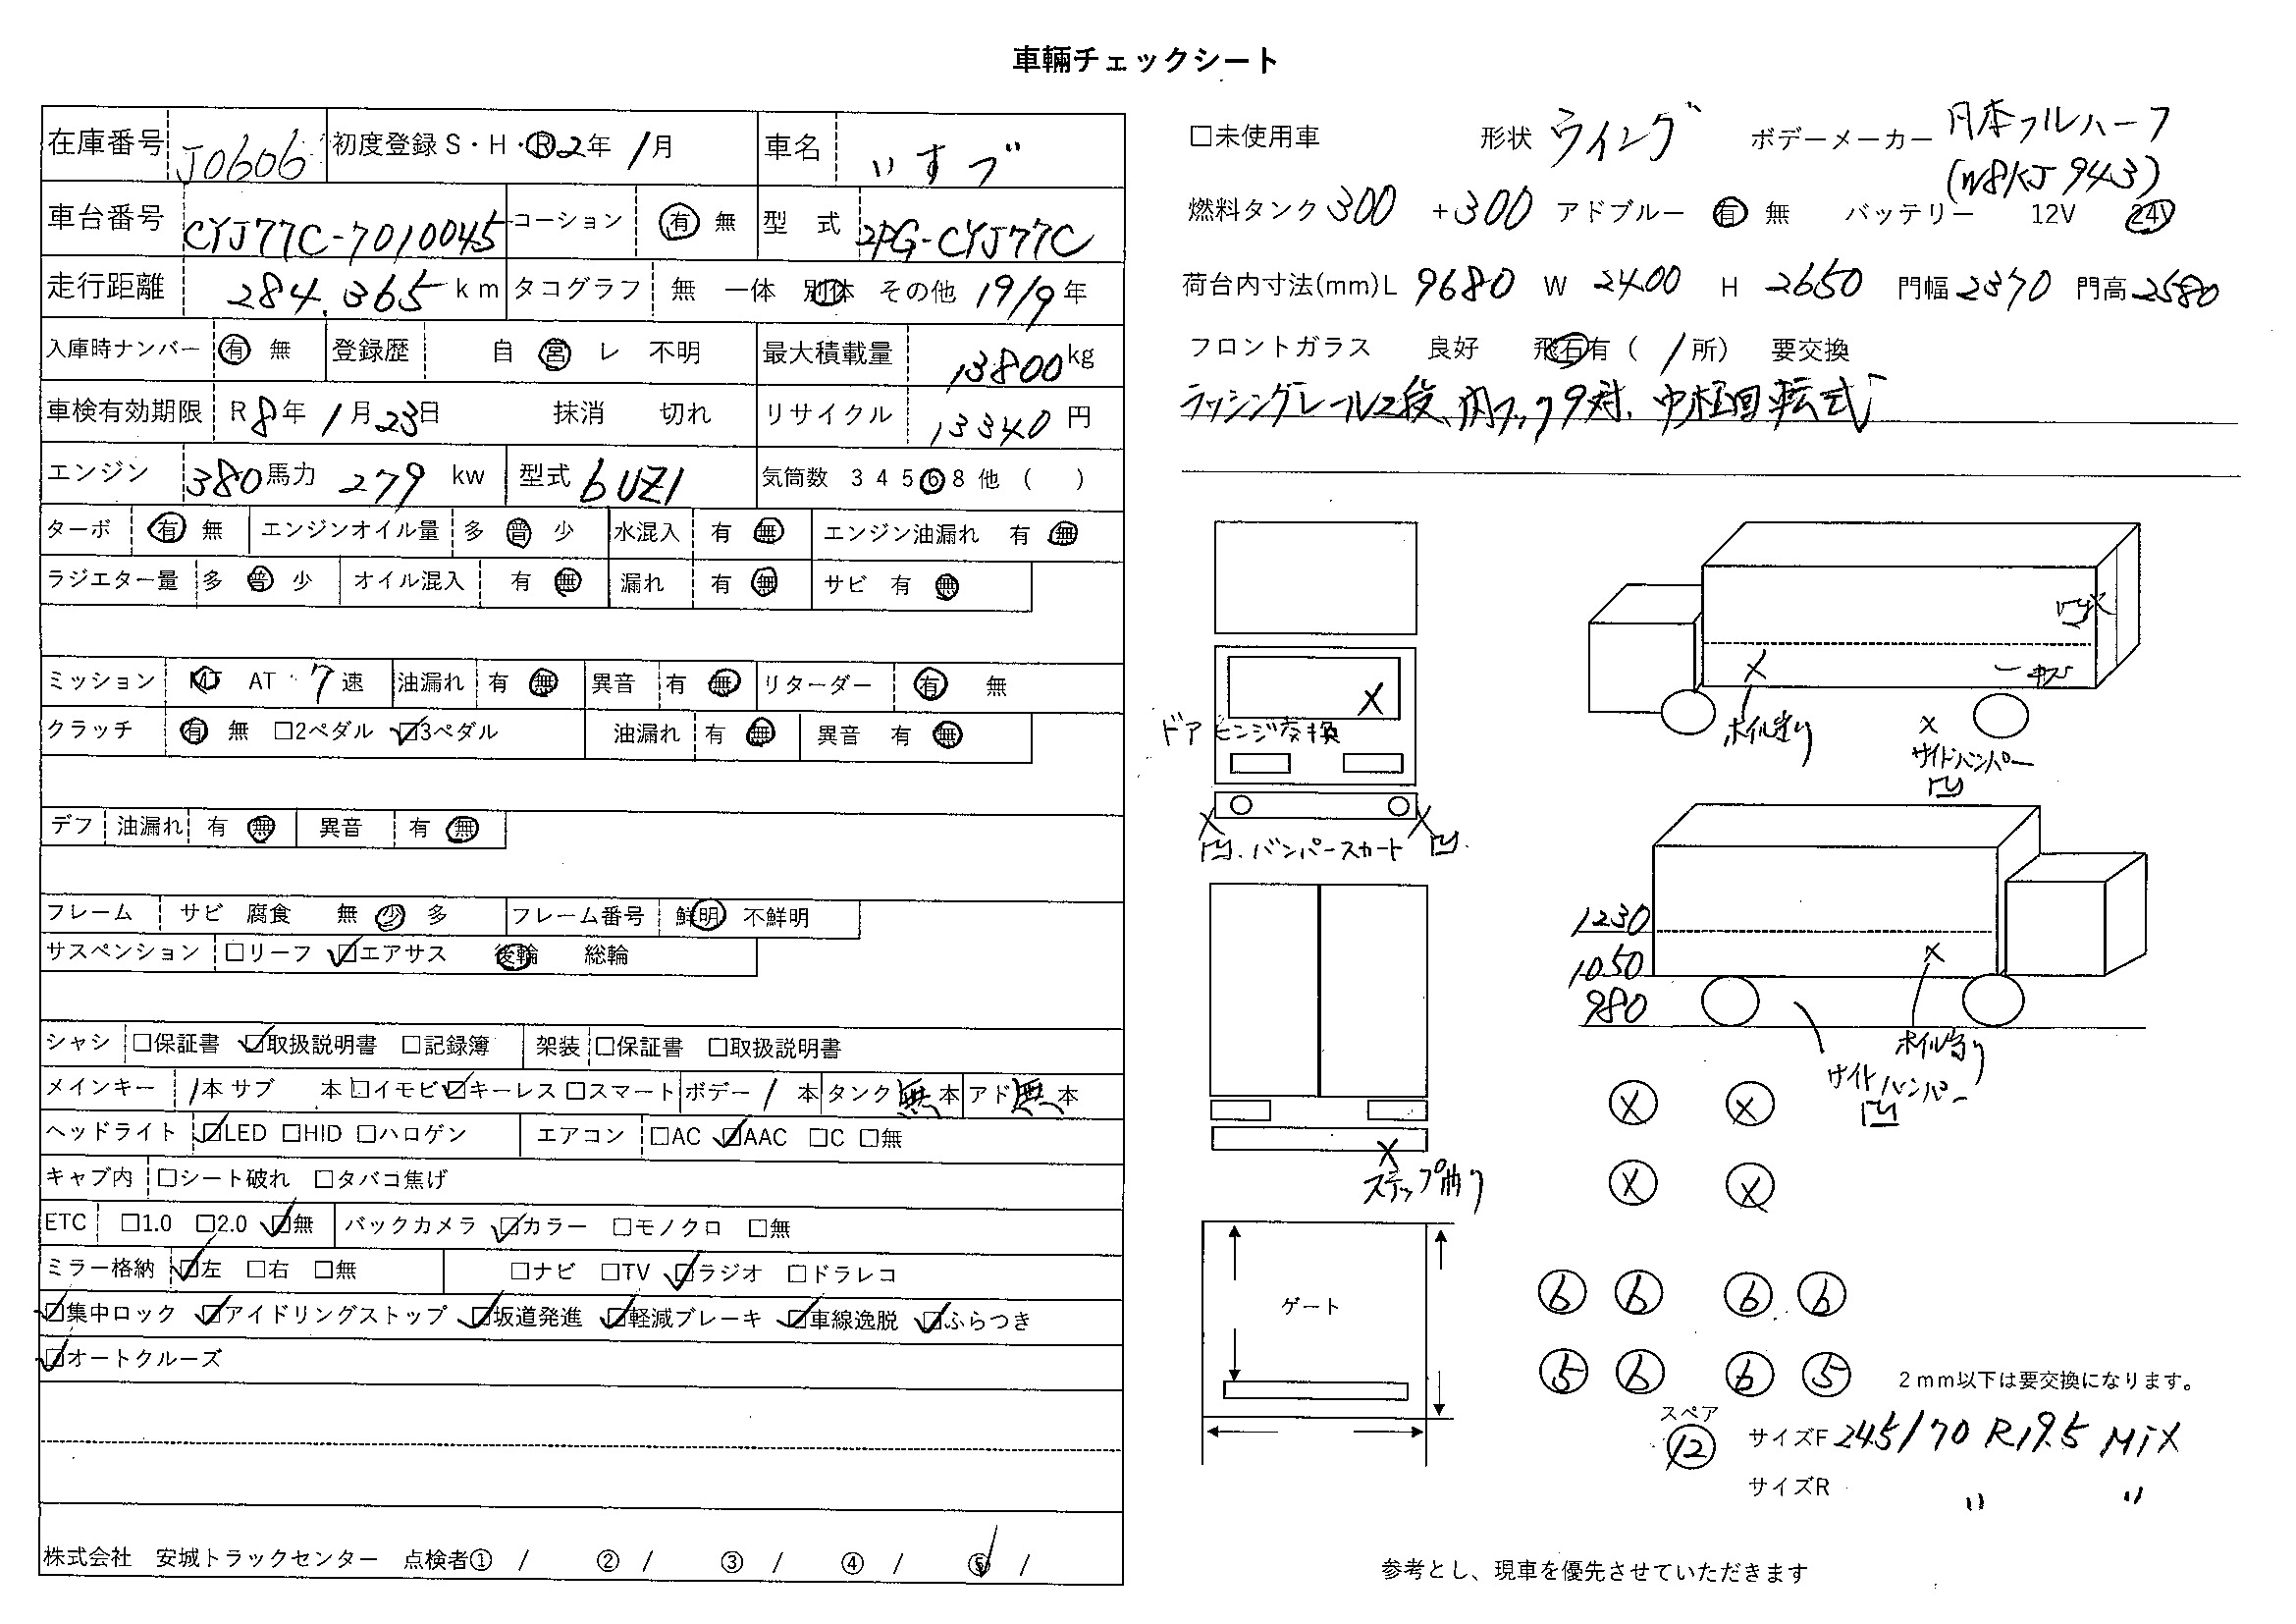 車輛チェックシート
在庫番号 J0606 初度登録 S・H・R 2年 1月 車名 いすづ
車台番号 CYJ77C-7010045 コーション 有 無 型 式 2PG-CYJ77C
走行距離 284,365 km タコグラフ 無 一体 別体 その他 19/9年
入庫時ナンバー 有 無 登録歴 自 営 レ 不明 最大積載量 13800kg
車検有効期限 R8年 1月23日 抹消 切れ リサイクル 13340円
エンジン 380馬力 279 kw 型式 6UZ1 気筒数 3 4 5 6 8 他 ( )
ターボ 有 無 エンジンオイル量 多 普 少 水混入 有 無 エンジン油漏れ 有 無
ラジエター量 多 普 少 オイル混入 有 無 漏れ 有 無 サビ 有 無
ミッション MT AT 7速 油漏れ 有 無 異音 有 無 リターダー 有 無
クラッチ 有 無 □2ペダル ☑3ペダル 油漏れ 有 無 異音 有 無
デフ 油漏れ 有 無 異音 有 無
フレーム サビ 腐食 無 少 多 フレーム番号 鮮明 不鮮明
サスペンション □リーフ ☑エアサス 後輪 総輪
シャシ □保証書 ☑取扱説明書 □記録簿 架装 □保証書 □取扱説明書
メインキー 1本 サブ 本 □イモビ ☑キーレス □スマート ボデー 1 本 タンク 無 本 アド 無 本
ヘッドライト ☑LED □HID □ハロゲン エアコン □AC ☑AAC □C □無
キャブ内 □シート破れ □タバコ焦げ
ETC □1.0 □2.0 ☑無 バックカメラ ☑カラー □モノクロ □無
ミラー格納 ☑左 □右 □無 □ナビ □TV ☑ラジオ □ドラレコ
☑集中ロック ☑アイドリングストップ ☑坂道発進 ☑軽減ブレーキ ☑車線逸脱 ☑ふらつき
☑オートクルーズ
株式会社 安城トラックセンター 点検者① / ② / ③ / ④ / ⑤ /
□未使用車 形状 ウイング ボデーメーカー 日本フルハーフ
(W8KJ943)
燃料タンク 300 +300 アドブルー 有 無 バッテリー 12V 24V
荷台内寸法(mm)L 9680 W 2400 H 2650 門幅 2370 門高 2580
フロントガラス 良好 飛石有 ( 1所) 要交換
ラッシングレール2段、内フック9対、中柱回転式
X
ドアヒンジ交換
X X
凹. バンパースカート 凹.
キズ
X
ホイル当り
X
サイドバンパー
凹
1230
1050
980
X
ホイル当り
サイドバンパー
凹
X
ステップ曲り
ゲート
X X
X X
6 6 6 6
5 6 6 5
2mm以下は要交換になります。
スペア
12
サイズF 245/70 R19.5 MIX
サイズR 〃 〃
参考とし、現車を優先させていただきます